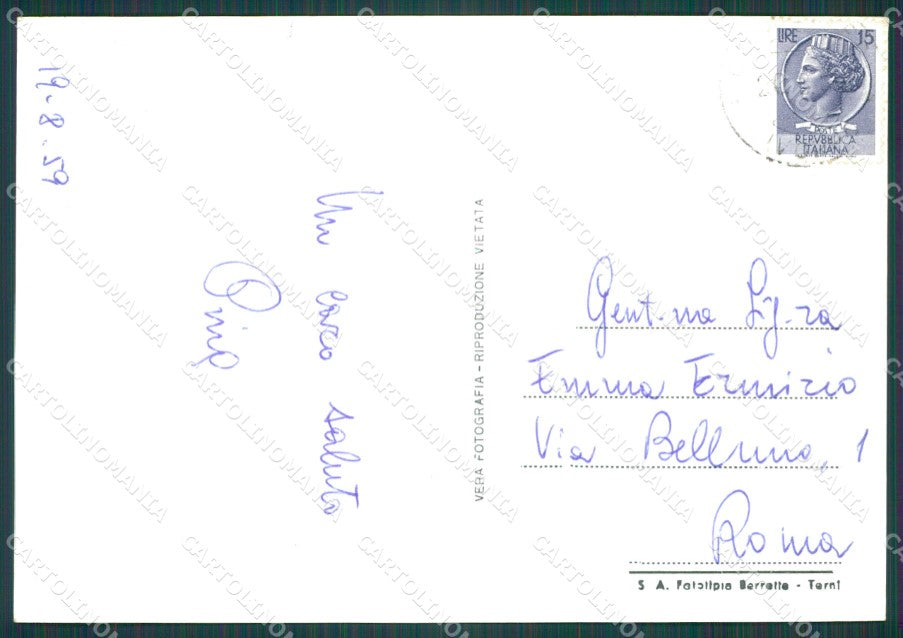 19.8.59
Un caro saluto
VERA FOTOGRAFIA - RIPRODUZIONE VIETATA
LIRE 15
POSTE
REPVBBLICA
ITALIANA
Gent.ma Sig.ra
Emma Erminio
Via Belluno, 1
Roma
S. A. Fototipia Berretta - Terni
CARTOLINOMANIA